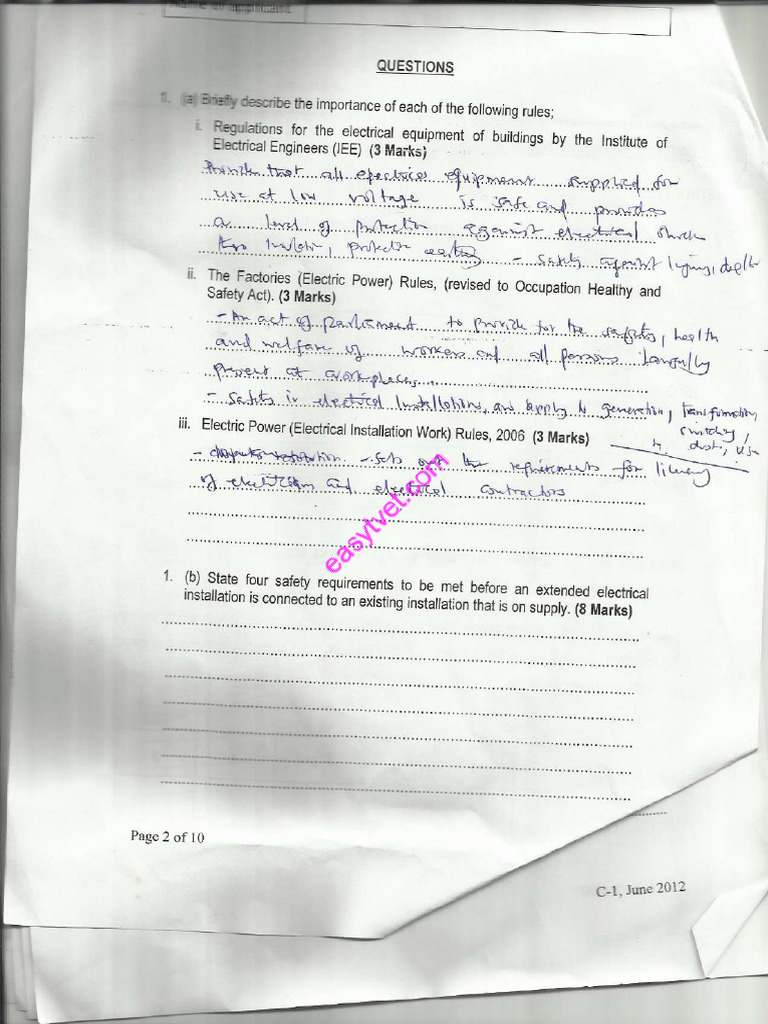 Name of applicant
QUESTIONS
1. (a) Briefly describe the importance of each of the following rules;
i. Regulations for the electrical equipment of buildings by the Institute of
Electrical Engineers (IEE) (3 Marks)
Provide that all electrical equipment supplied for
use at low voltage is safe and provides
a level of protection against electrical shock
protective earthing - safety against
ii. The Factories (Electric Power) Rules, (revised to Occupation Healthy and
Safety Act). (3 Marks)
- An act of parliament to provide for the safety, health
and welfare of workers and all persons lawfully
present at workplaces.
- Safety in electrical installations, and apply to generation, transformation
switching,
iii. Electric Power (Electrical Installation Work) Rules, 2006 (3 Marks)
- sets out the requirements for
of electricians and electrical contractors
easytvet.com
1. (b) State four safety requirements to be met before an extended electrical
installation is connected to an existing installation that is on supply. (8 Marks)
Page 2 of 10
C-1, June 2012